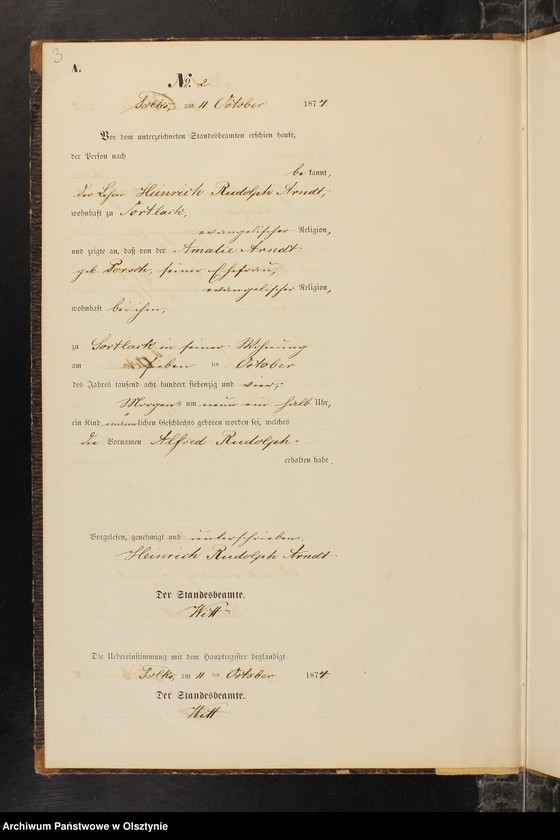 3
A.
No. 2
Tolks, am 11 October 1874.
Vor dem unterzeichneten Standesbeamten erschien heute,
der Person nach
be kannt,
der Lehrer Heinrich Rudolph Arndt,
wohnhaft zu Sortlack,
evangelischer Religion,
und zeigte an, daß von der Amalie Arndt
geb. Porsch, seiner Ehefrau,
evangelischer Religion,
wohnhaft bei ihm,
zu Sortlack in seiner Wohnung
am sieben ten October
des Jahres tausend acht hundert siebenzig und vier,
Morgens um neun ein halb Uhr,
ein Kind männlichen Geschlechts geboren worden sei, welches
die Vornamen Alfred Rudolph
erhalten habe.
Vorgelesen, genehmigt und unterschrieben
Heinrich Rudolph Arndt
Der Standesbeamte.
Witt
Die Uebereinstimmung mit dem Hauptregister beglaubigt
Tolks, am 11 ten October 1874.
Der Standesbeamte.
Witt
Archiwum Państwowe w Olsztynie